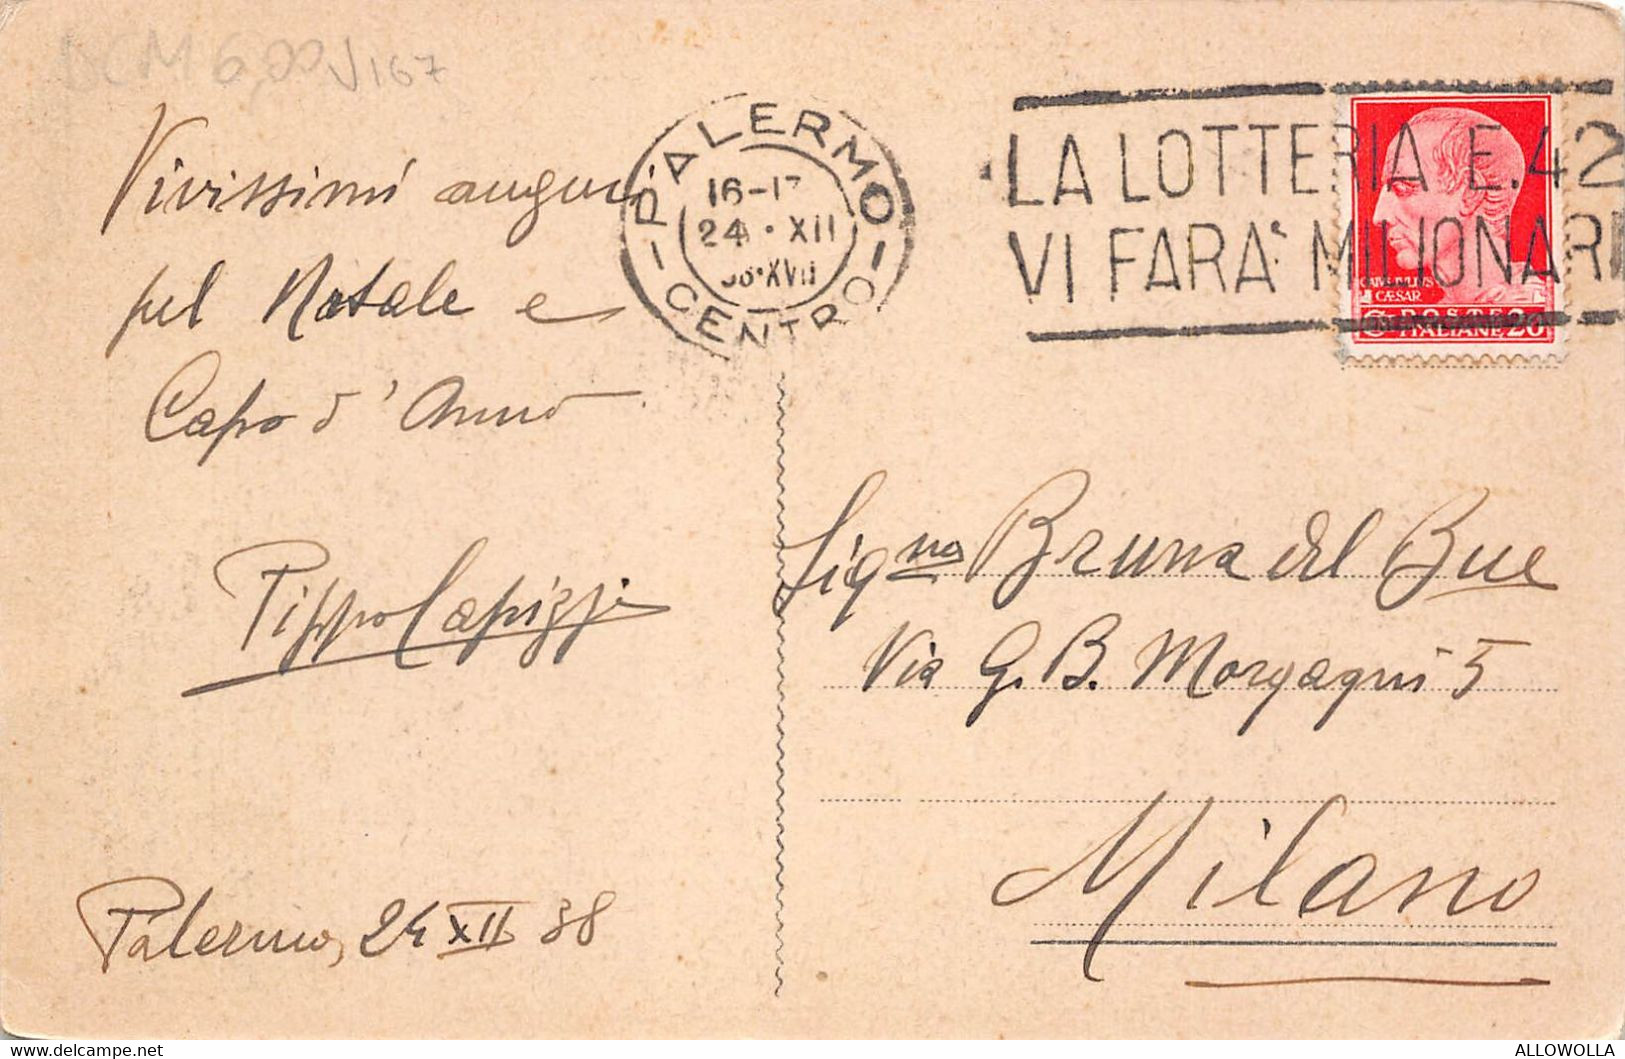 V167
Vivissimi auguri
pel Natale e
Capo d'Anno
Pippo Capizzi
Palermo, 24 XII 38
PALERMO
16-17
24 · XII
38·XVII
CENTRO
LA LOTTERIA E.42
VI FARA' MILIONARI
CAIVS IVLIVS
CÆSAR
POSTE
ITALIANE 20
Sig.na Bruna del Bue
Via G. B. Morgagni 5
Milano
ALLOWOLLA